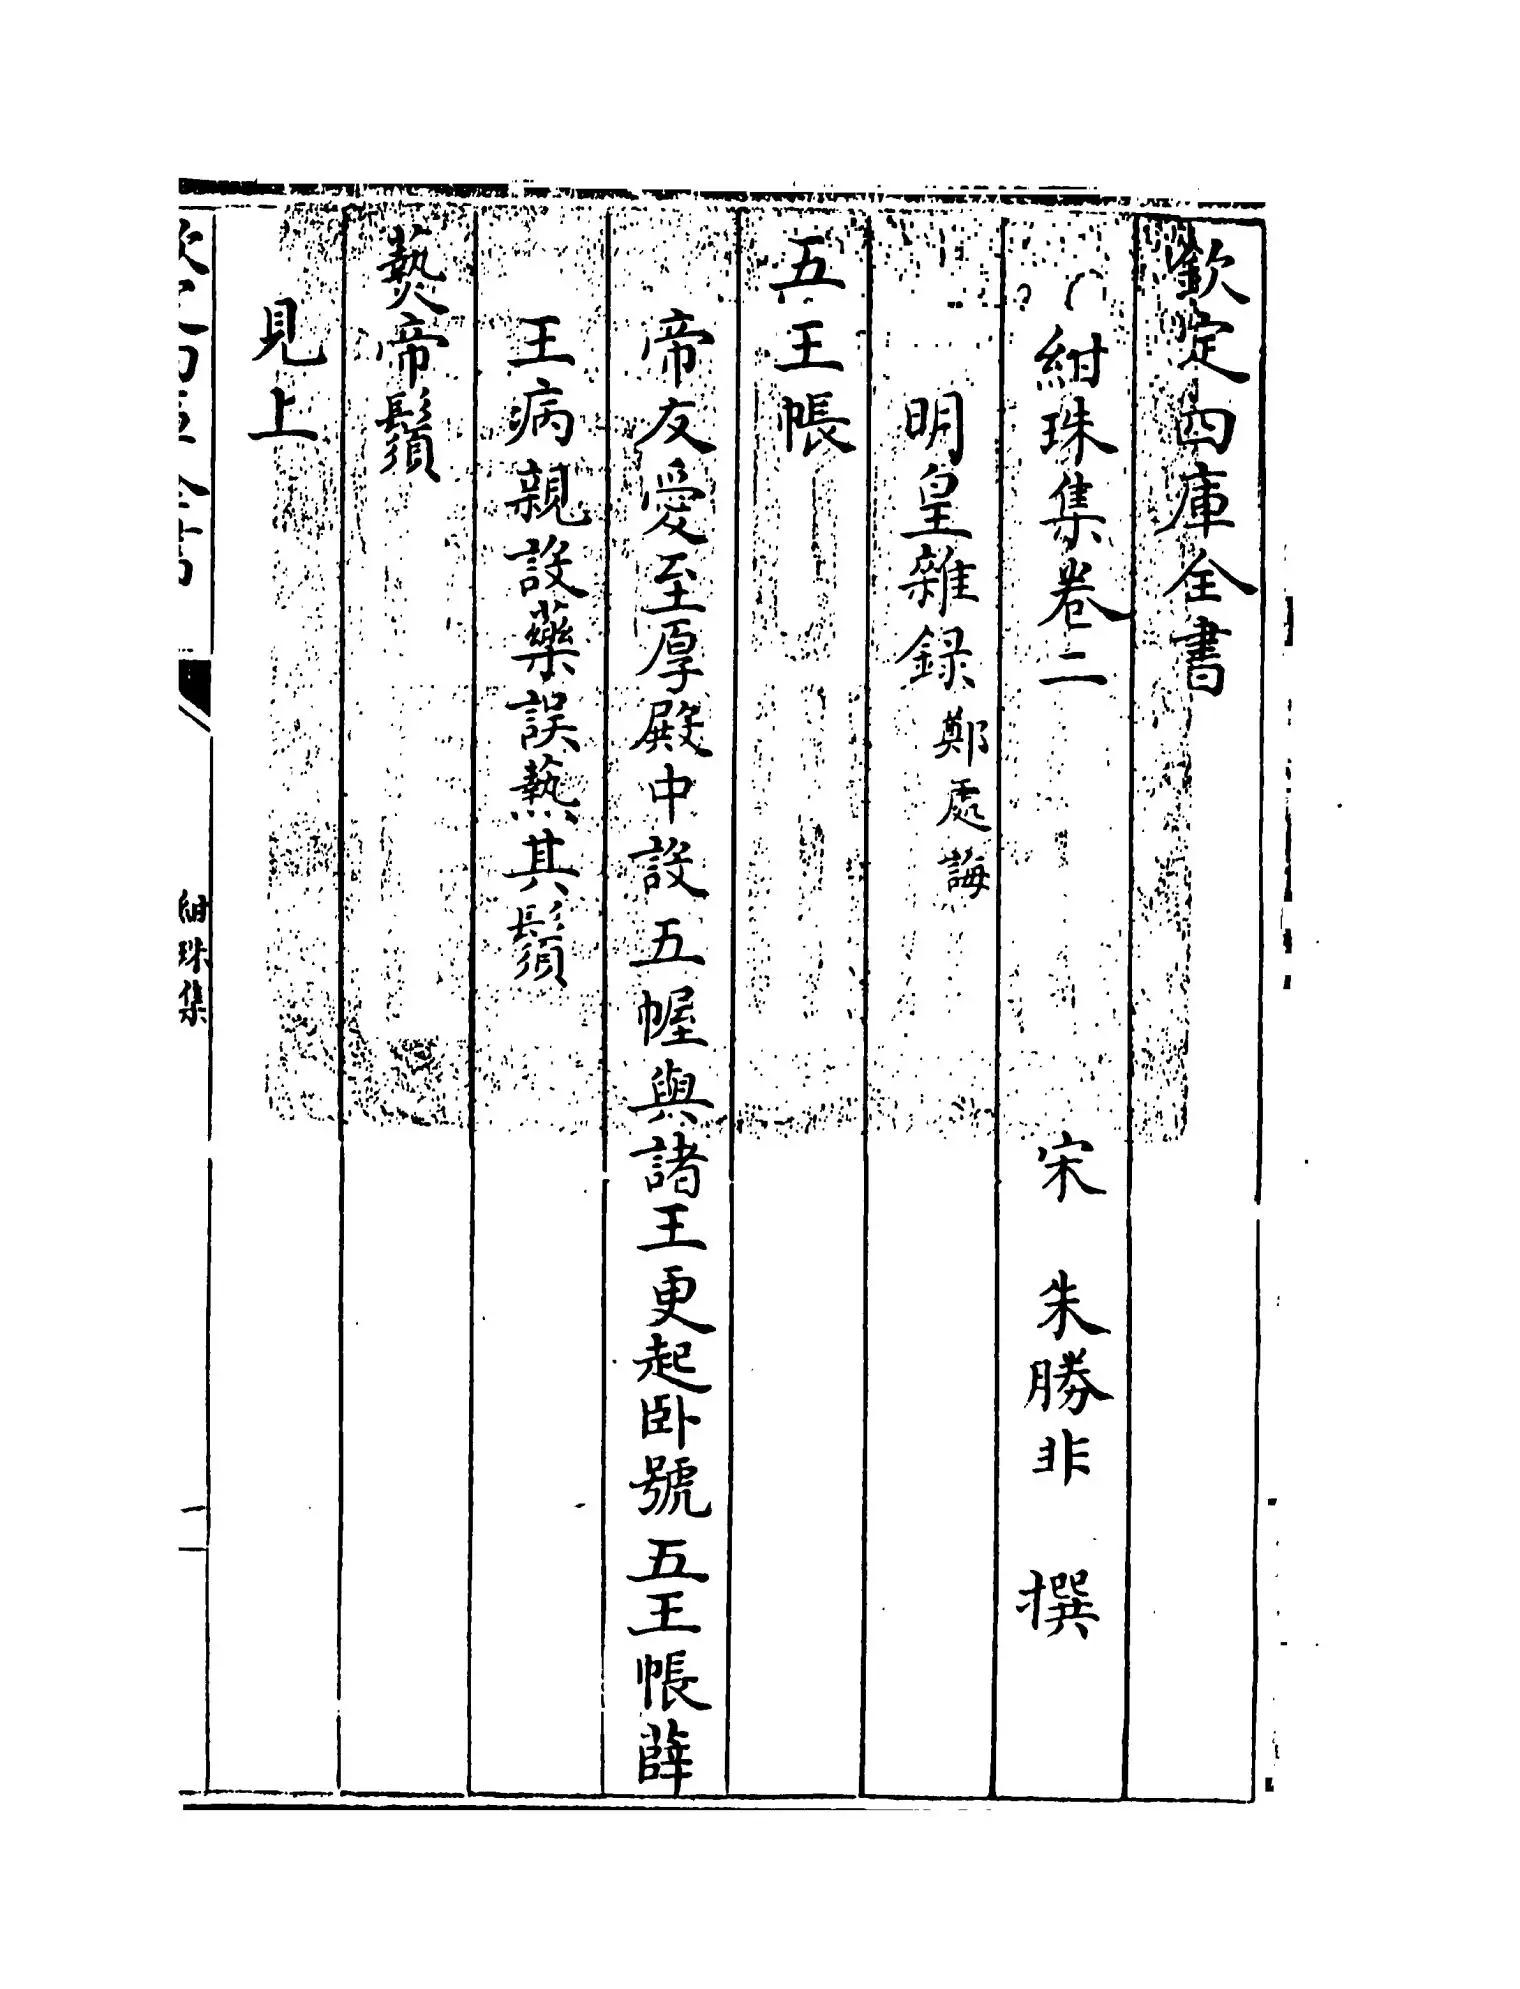 欽定四庫全書
紺珠集卷二
宋 朱勝非 撰
明皇雜録 鄭處誨
五王帳
帝友愛至厚殿中設五幄與諸王更起卧號五王帳薛
王病親設藥誤爇其鬚
爇帝鬚
見上
欽定四庫全書
紺珠集
一